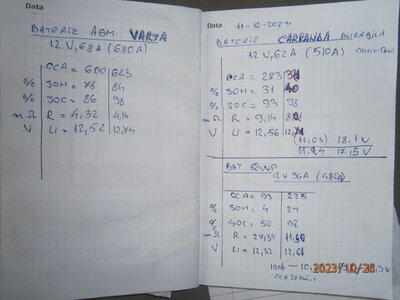 Data
BATERIE AGM VARTA
12 V, 68A (680A)
CCA = 600 623
% SOH = 78 84
% SOC = 86 98
mΩ R = 4,32 4,16
V U = 12,52 12,74
Data 11-10-2023
BATERIE CARRANDA DURABILA
12 V, 62A (510A)
CCA = 283
% SOH = 31 40
% SOC = 93 98
mΩ R = 9,14
V U = 12,56
(11,03) 18.1 V
17,5 V
BAT
12V 56A (480A)
CCA = 93 225
% SOH = 4 24
% SOC = 50 98
mΩ R = 27,34
V U = 12,32
2023/10/26